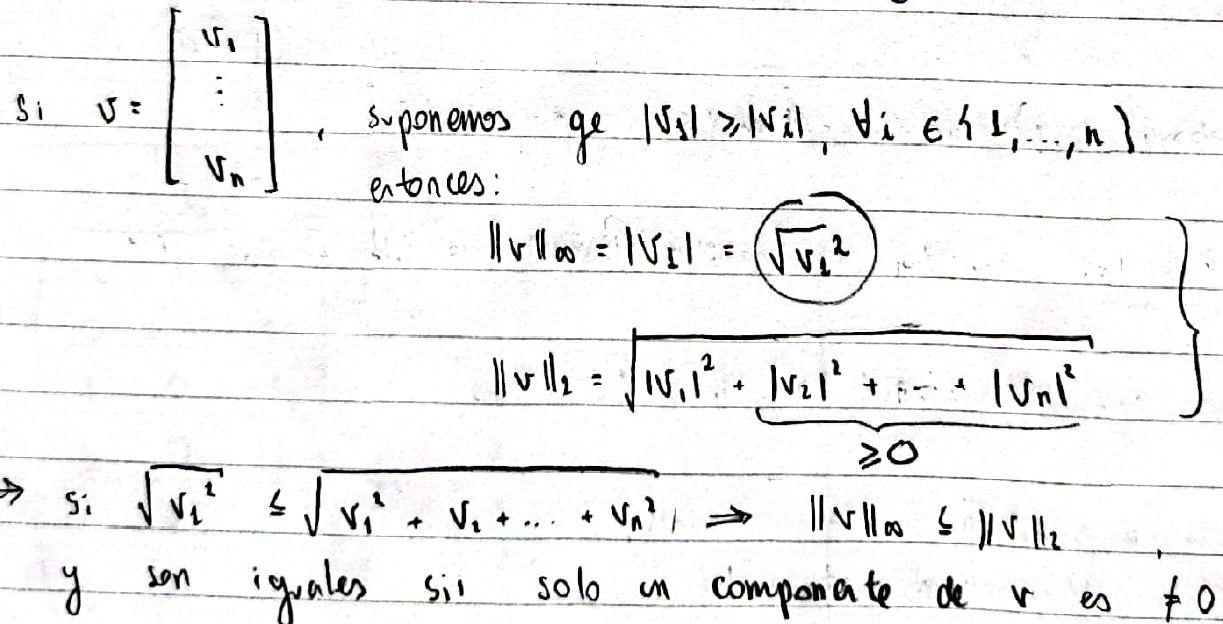 Si v = [ v₁ ⋮ vₙ ] , suponemos qe |v₁| ≥ |vi|, ∀i ∈ {1, ..., n}
entonces:
||v||∞ = |v₁| = √v₁²
||v||₂ = √|v₁|² + |v₂|² + ... + |vₙ|²
≥0
⇒ si √v₁² ≤ √v₁² + v₂ + ... + vₙ² , ⇒ ||v||∞ ≤ ||v||₂ ,
y son iguales sii solo un componente de v es ≠ 0